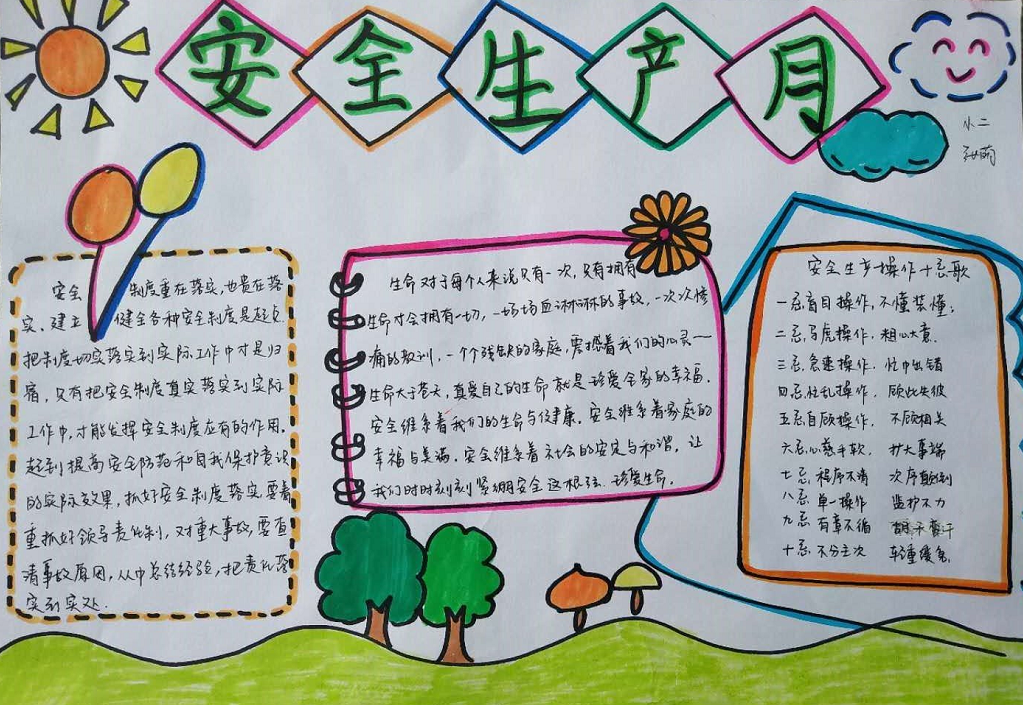 安全生产月
小二
安全制度重在落实,也贵在落
实、建立健全各种安全制度是起点
把制度切实落实到实际工作中才是归
宿,只有把安全制度真实落实到实际
工作中,才能发挥安全制度应有的作用,
起到提高安全防范和自我保护意识
的实际效果,抓好安全制度落实,要着
重抓好领导责任制,对重大事故,要查
清事故原因,从中总结经验,把责任落
实到实处.
生命对于每个人来说只有一次,只有拥有
生命才会拥有一切,一场场血淋淋的事故,一次次惨
痛的教训,一个个残缺的家庭,震撼着我们的心灵——
生命大于苍天,真爱自己的生命就是珍爱全家的幸福.
安全维系着我们的生命与健康,安全维系着家庭的
幸福与美满,安全维系着社会的安定与和谐,让
我们时时刻刻紧绷安全这根弦,珍爱生命.
安全生产操作十忌歌
一忌盲目操作,不懂装懂;
二忌马虎操作,粗心大意.
三忌急速操作,忙中出错
四忌忙乱操作,顾此失彼
五忌自顾操作,不顾相关
六忌心慈手软,扩大事端
七忌程序不清 次序颠倒
八忌单一操作 监护不力
九忌有章不循
十忌不分主次